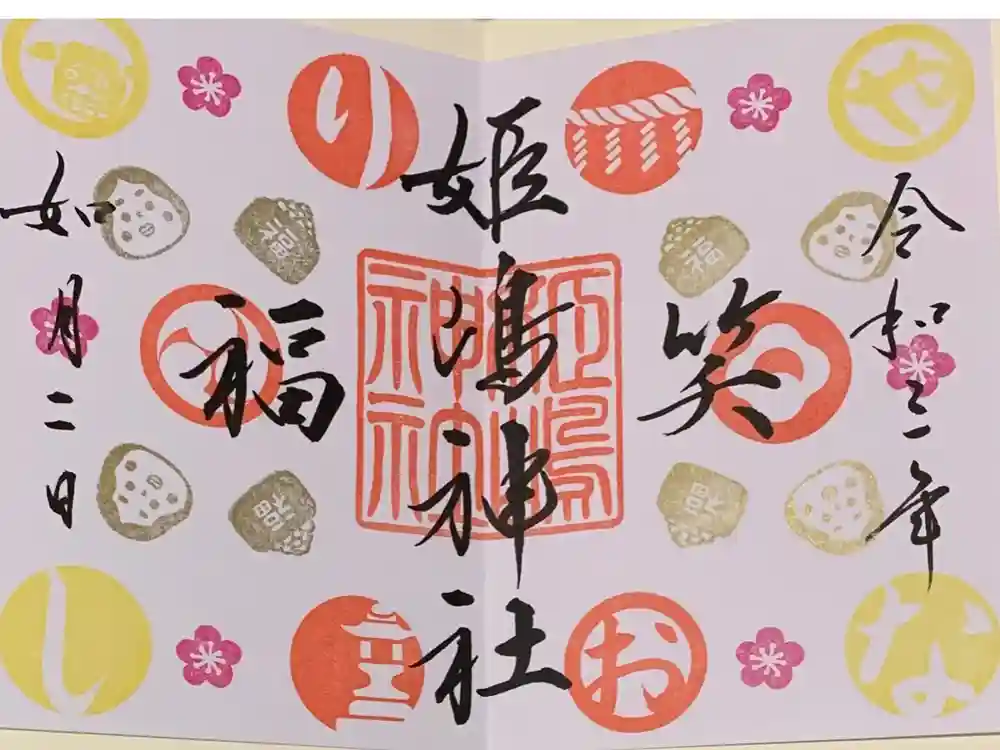 令和三年
笑
姫嶋神社
福
如月二日
姫嶋
神社
や
り
な
お
し
福
福
福
福